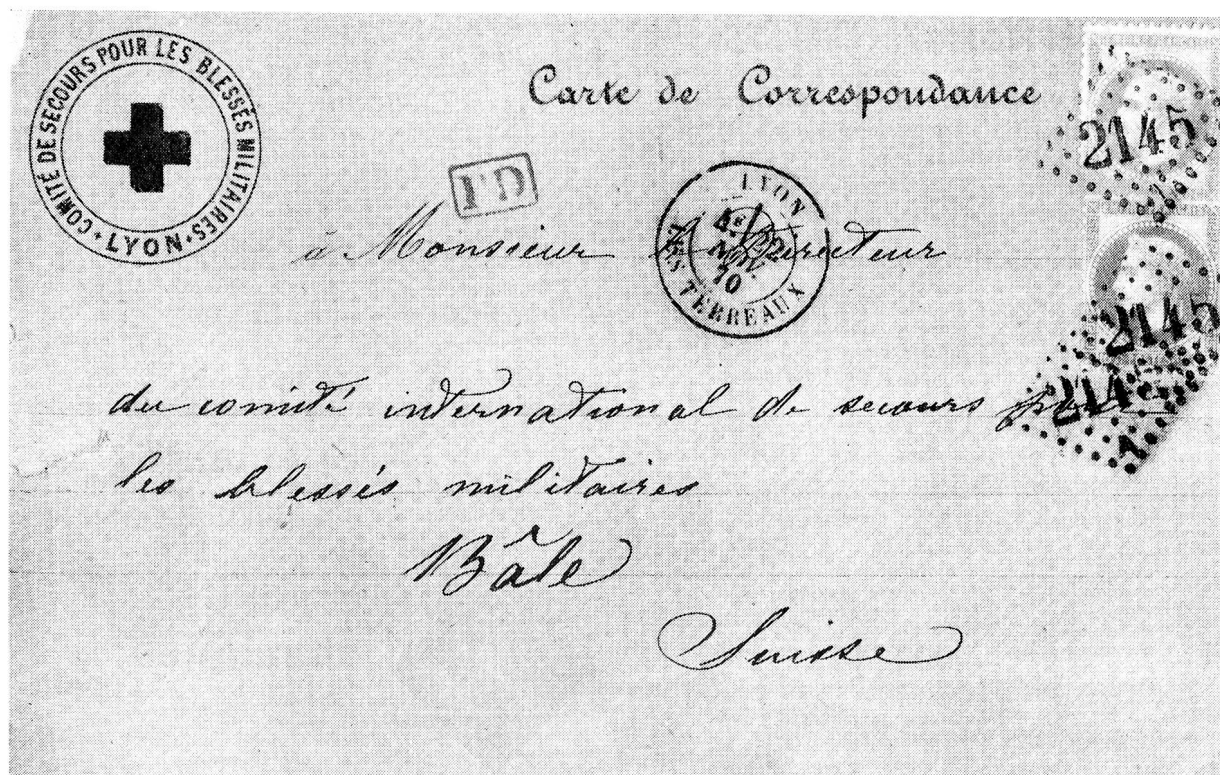 COMITÉ DE SECOURS POUR LES BLESSÉS MILITAIRES
• LYON •
Carte de Correspondance
PD
2145
LYON
22
NOV.
70
LES TERREAUX
à Monsieur le Directeur
2145
2145
A
du comité international de secours pour
les blessés militaires
Bâle
Suisse